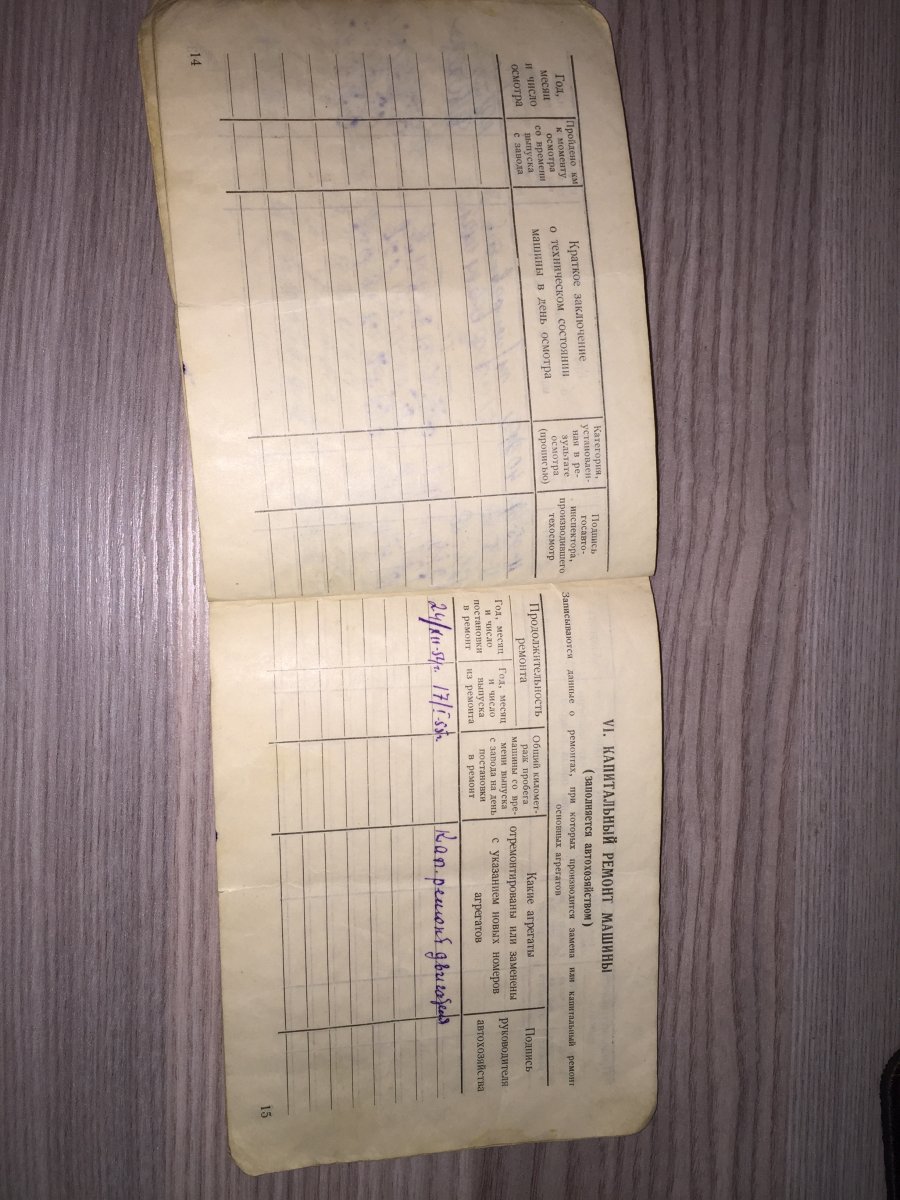 Год,
месяц
и число
осмотра
Пройдено км
к моменту
осмотра
со времени
выпуска
с завода
Краткое заключение
о техническом состоянии
машины в день осмотра
Категория,
установлен-
ная в ре-
зультате
осмотра
(прописью)
Подпись
госавто-
инспектора,
производившего
техосмотр
14
VI. КАПИТАЛЬНЫЙ РЕМОНТ МАШИНЫ
(заполняется автохозяйством)
Записываются данные о ремонтах, при которых производится замена или капитальный ремонт
основных агрегатов
Продолжительность
ремонта
Год, месяц
и число
постановки
в ремонт
Год, месяц
и число
выпуска
из ремонта
Общий километ-
раж пробега
машины со вре-
мени выпуска
с завода на день
постановки
в ремонт
Какие агрегаты
отремонтированы или заменены
с указанием новых номеров
агрегатов
Подпись
руководителя
автохозяйства
24/XII-54г. 17/I-55г. Кап. ремонт двигателя
15